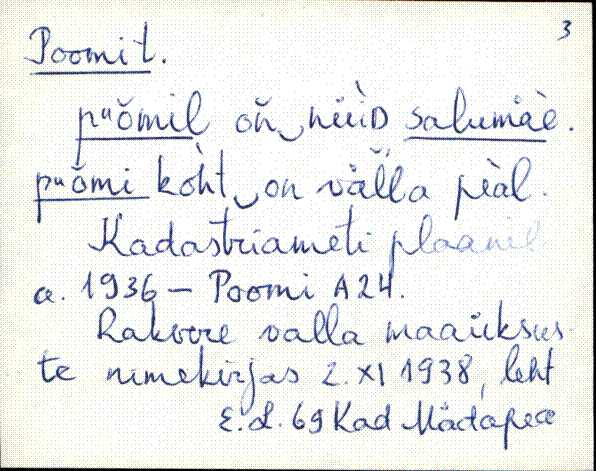 3
Poomit.
pᵘŏmil oň‿nüìᴅ salumäè.
pᵘŏmi koht‿on välla peàl.
Kadastriameti plaanil
a. 1936 — Poomi A24.
Rakvere valla maaüksus-
te nimekirjas 2.XI 1938, leht
E.L. 69 Kad Mädapea